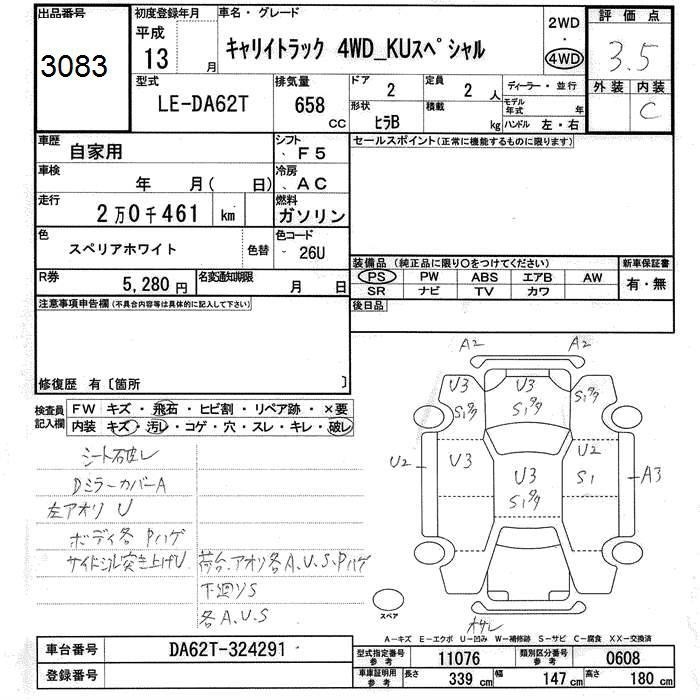 出品番号 初度登録年月 車名・グレード 2WD 評価点
3083 平成 13 月 キャリイトラック 4WD_KUスペシャル 4WD 3.5
型式 排気量 ドア 2 定員 2 人 ディーラー・並行 外装 内装
LE-DA62T 658 CC 形状 ヒラB 積載 kg モデル年式 年 C
ハンドル 左・右
車歴 自家用 シフト F5 セールスポイント(正常に機能するものに限ります)
車検 年 月( 日) 冷房 AC
走行 2万0千461 km 燃料 ガソリン
色 スペリアホワイト 色替 色コード 26U
装備品 (純正品に限り○をつけてください) 新車保証書
R券 5,280円 名変通知期限 月 日 PS PW ABS エアB AW 有・無
SR ナビ TV カワ
注意事項申告欄(不具合内容等は具体的に記入して下さい) 後日品
修復歴 有〔箇所 〕
検査員記入欄 FW キズ・飛石・ヒビ割・リペア跡・×要
内装 キズ・汚レ・コゲ・穴・スレ・キレ・破レ
シート右破レ
DミラーカバーA
左アオリ U
ボディ各 Pハゲ
サイドシル突き上げU 荷台.アオリ各A.U.S.Pハゲ
下廻りS
各A.U.S
A2 A2
U3 U3
S1 S1 S1
U2 U3 U3 U2 A3
S1 S1
スペア
A-キズ E-エクボ U-凹み W-補修跡 S-サビ C-腐食 XX-交換済
車台番号 DA62T-324291 型式指定番号 参考 11076 類別区分番号 参考 0608
登録番号 車庫証明用 参考 長さ 339 cm 幅 147 cm 高さ 180 cm